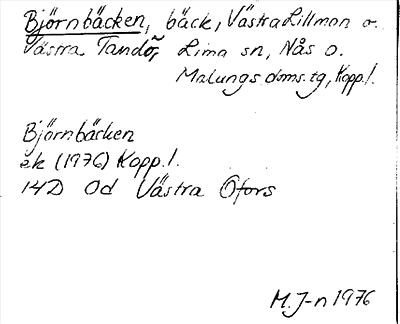 Björnbäcken, bäck, Västra Lillmon o.
Västra Tandö, Lima sn, Nås o.
Malungs doms.tg, Kopp.l.
Björnbäcken
ek (1976) Kopp.l.
14D 0d Västra Ofors
M.J-n 1976